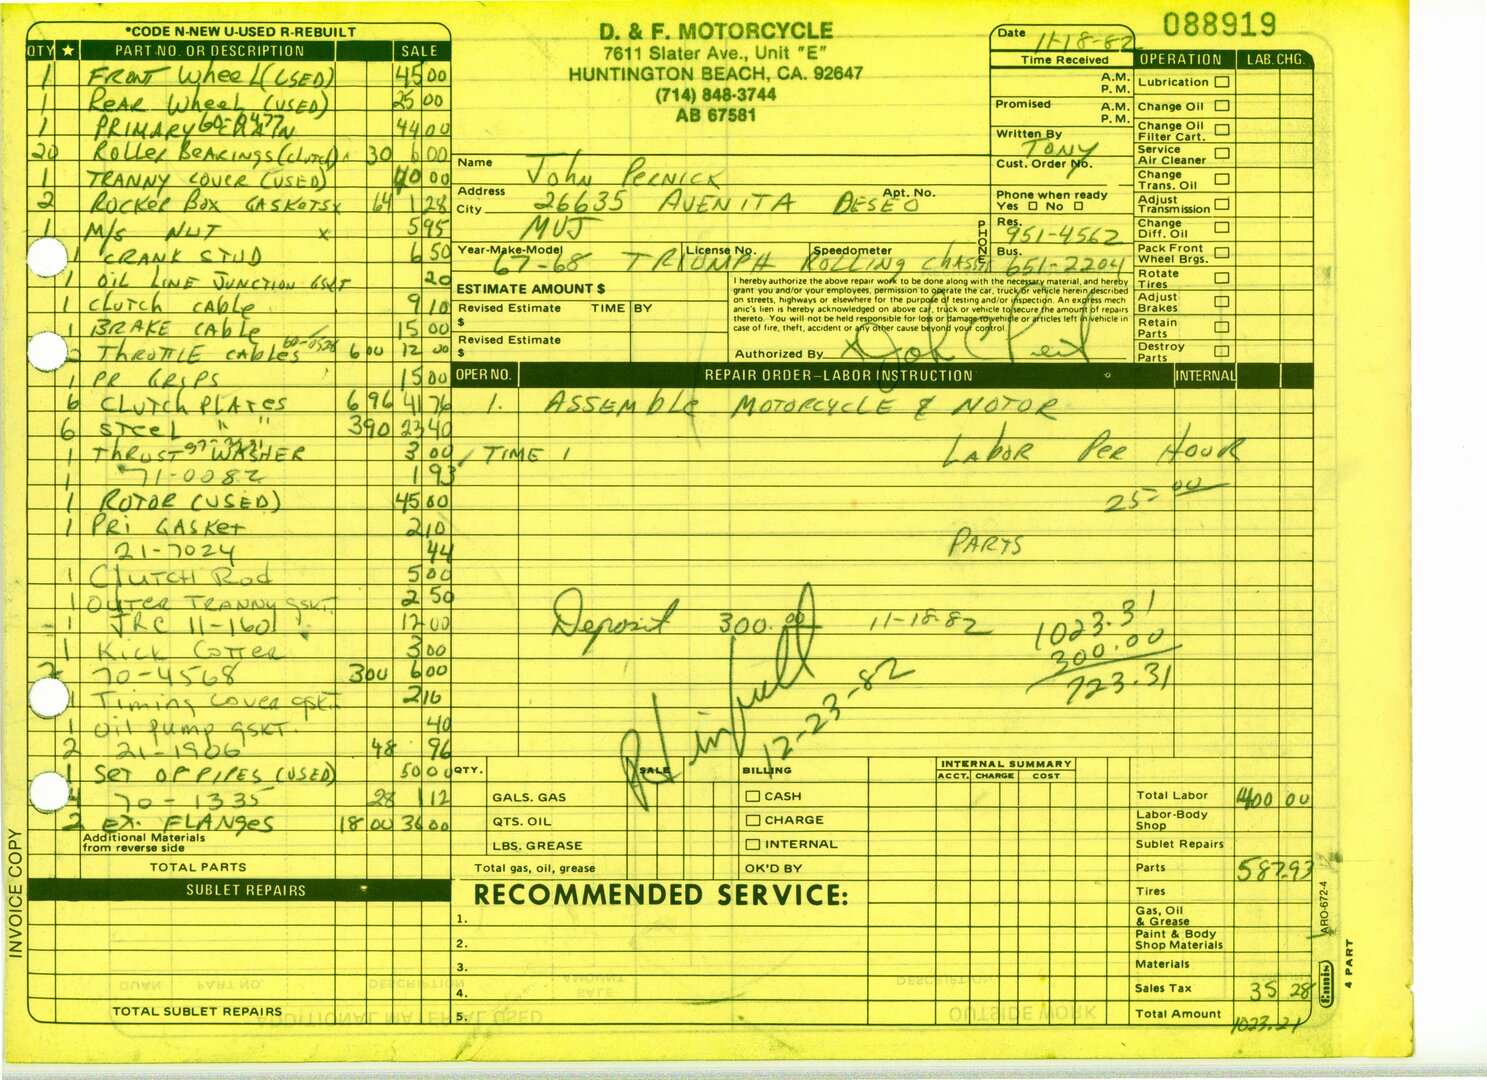 *CODE N-NEW U-USED R-REBUILT
QTY ★ PART NO. OR DESCRIPTION SALE
1 FRONT WHEEL (USED) 45 00
1 REAR WHEEL (USED) 25 00
1 PRIMARY CHAIN 60-0477 44 00
20 ROLLER BEARINGS (CLUTCH) 30 6 00
1 TRANNY COVER (USED) 40 00
2 ROCKER BOX GASKETS x 64 1 28
1 M/S NUT x 5 95
1 CRANK STUD 6 50
1 OIL LINE JUNCTION GSKT 20
1 CLUTCH CABLE 9 10
1 BRAKE CABLE 15 00
2 THROTTLE CABLES 60-0528 6 00 12 00
1 PR GRIPS 15 00
6 CLUTCH PLATES 6 96 41 76
6 STEEL " " 3 90 23 40
1 THRUST WASHER 3 00
1 71-0082 1 93
1 ROTOR (USED) 45 00
1 PRI GASKET 2 10
21-7024 44
1 CLUTCH ROD 5 00
1 OUTER TRANNY GSKT 2 50
1 JRC 11-1601 12 00
1 KICK COTTER 3 00
2 70-4568 3 00 6 00
1 Timing COVER GSKT 2 10
1 OIL PUMP GSKT. 40
2 21-1906 48 96
1 SET OF PIPES (USED) 50 00
4 70-1335 28 1 12
2 EX. FLANGES 18 00 36 00
Additional Materials
from reverse side
TOTAL PARTS
SUBLET REPAIRS
TOTAL SUBLET REPAIRS
INVOICE COPY
D. & F. MOTORCYCLE
7611 Slater Ave., Unit "E"
HUNTINGTON BEACH, CA. 92647
(714) 848-3744
AB 67581
Name John PERNICK
Address 26635 AVENITA DESEO Apt. No.
City MVJ
Year-Make-Model License No. Speedometer
67-68 TRIUMPH ROLLING CHASSIS
ESTIMATE AMOUNT $
Revised Estimate TIME BY
$
Revised Estimate
$
I hereby authorize the above repair work to be done along with the necessary material, and hereby
grant you and/or your employees, permission to operate the car, truck or vehicle herein described
on streets, highways or elsewhere for the purpose of testing and/or inspection. An express mech
anic's lien is hereby acknowledged on above car, truck or vehicle to secure the amount of repairs
thereto. You will not be held responsible for loss or damage to vehicle or articles left in vehicle in
case of fire, theft, accident or any other cause beyond your control.
Authorized By x
088919
Date 11-18-82
Time Received A.M.
P.M.
Promised A.M.
P.M.
Written By
TONY
Cust. Order No.
Phone when ready
Yes No
PHONE
Res. 951-4562
Bus. 651-2204
OPERATION LAB. CHG.
Lubrication
Change Oil
Change Oil
Filter Cart.
Service
Air Cleaner
Change
Trans. Oil
Adjust
Transmission
Change
Diff. Oil
Pack Front
Wheel Brgs.
Rotate
Tires
Adjust
Brakes
Retain
Parts
Destroy
Parts
OPER NO. REPAIR ORDER-LABOR INSTRUCTION INTERNAL
1. ASSEMBLE MOTORCYCLE & MOTOR
TIME 1 LABOR PER HOUR
25 00
PARTS
Deposit 300.00 11-18-82 1023.31
300.00
723.31
Pd in full
12-23-82
QTY. SALE BILLING
GALS. GAS CASH
QTS. OIL CHARGE
LBS. GREASE INTERNAL
Total gas, oil, grease OK'D BY
INTERNAL SUMMARY
ACCT. CHARGE COST
RECOMMENDED SERVICE:
1.
2.
3.
4.
5.
Total Labor 400 00
Labor-Body
Shop
Sublet Repairs
Parts 587.93
Tires
Gas, Oil
& Grease
Paint & Body
Shop Materials
Materials
Sales Tax 35 28
Total Amount 1023.21
ARO-672-4
Ennis
4 PART